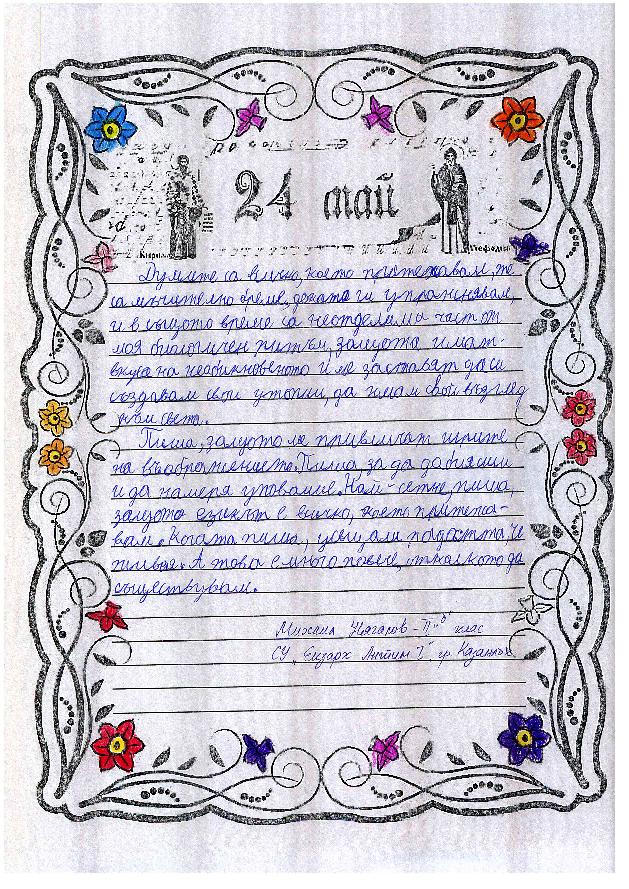 24 май
Кирил
Методий
Думите са всичко, което притежавам, те
са мъчително бреме, докато ги упражнявам,
и в същото време са неотделима част от
моя биологичен ритъм, защото имат
вкуса на необикновеното и ме заставят да си
създавам свои утопии, да имам свой възглед
към света.
Пиша, защото ме привличат игрите
на въображението. Пиша, за да добия сили
и да намеря упование. Най-сетне, пиша,
защото езикът е всичко, което притежа-
вам. Когато пиша, усещам радостта, че
живея. А това е много повече, отколкото да
съществувам.
Михаил Нягалов - клас
СУ „Екзарх Антим I", гр. Казанлък